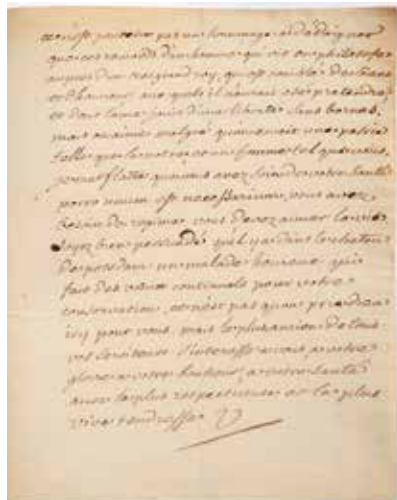 ce n'est peutetre pas un hommage a dedaigner
que ces remords d'un homme qui vit en philosophe
aupres d'un tres grand roy, qui est comblé de biens
et d'honneurs aux quels il n'auroit osé pretendre
et dont l'ame jouit d'une liberté sans bornes.
mais on aime malgré qu'on en ait une patrie
telle que la notre et un homme tel que vous.
je me flatte que vous avez soin de votre santé
porro unum est necessarium, vous avez
besoin de regime. vous devez aimer la vie
soyez bien persuadé qu'il y a dans le chateau
de potsdam un malade heureux qui
fait des vœux continuels pour votre
conservation. ce n'est pas qu'on prie dieu
icy pour vous. mais le plus ancien de tous
vos serviteurs s'interesse a vous a votre
gloire a votre bonheur, a votre santé
avec la plus respectueuse et la plus
vive tendresse